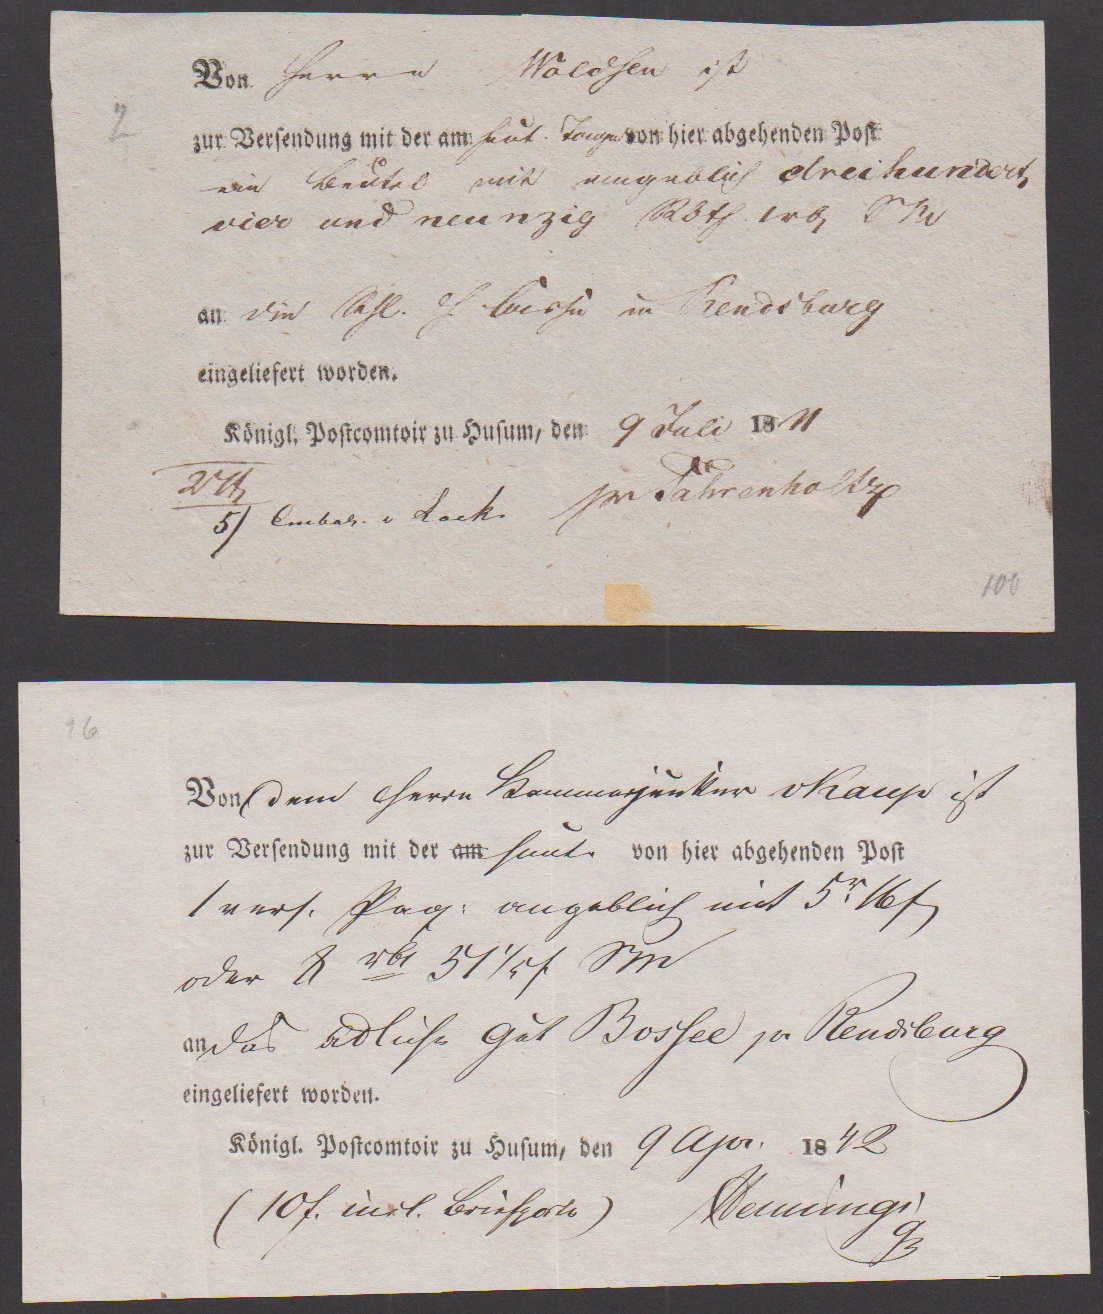 2
Von Herrn Woldsen ist
zur Versendung mit der am heut. Tage von hier abgehenden Post
ein Beutel mit angeblich dreihundert,
vier und neunzig Rbth
an die Kgl. Casse in Rendsburg
eingeliefert worden.
Königl. Postcomtoir zu Husum, den 9 Juli 18
pr Fahrenholtz
5) Embal. & Lack.
100
26
Von dem Herrn Kammerjunker v Kaup ist
zur Versendung mit der am heute von hier abgehenden Post
1 vers. Pag: angeblich mit 5 r 16 f
oder 8 rbt 51 1/5 f SM
an das adliche Gut Bossee pr Rendsburg
eingeliefert worden.
Königl. Postcomtoir zu Husum, den 9 Apr. 1842
(10 f. incl. Briefporto)